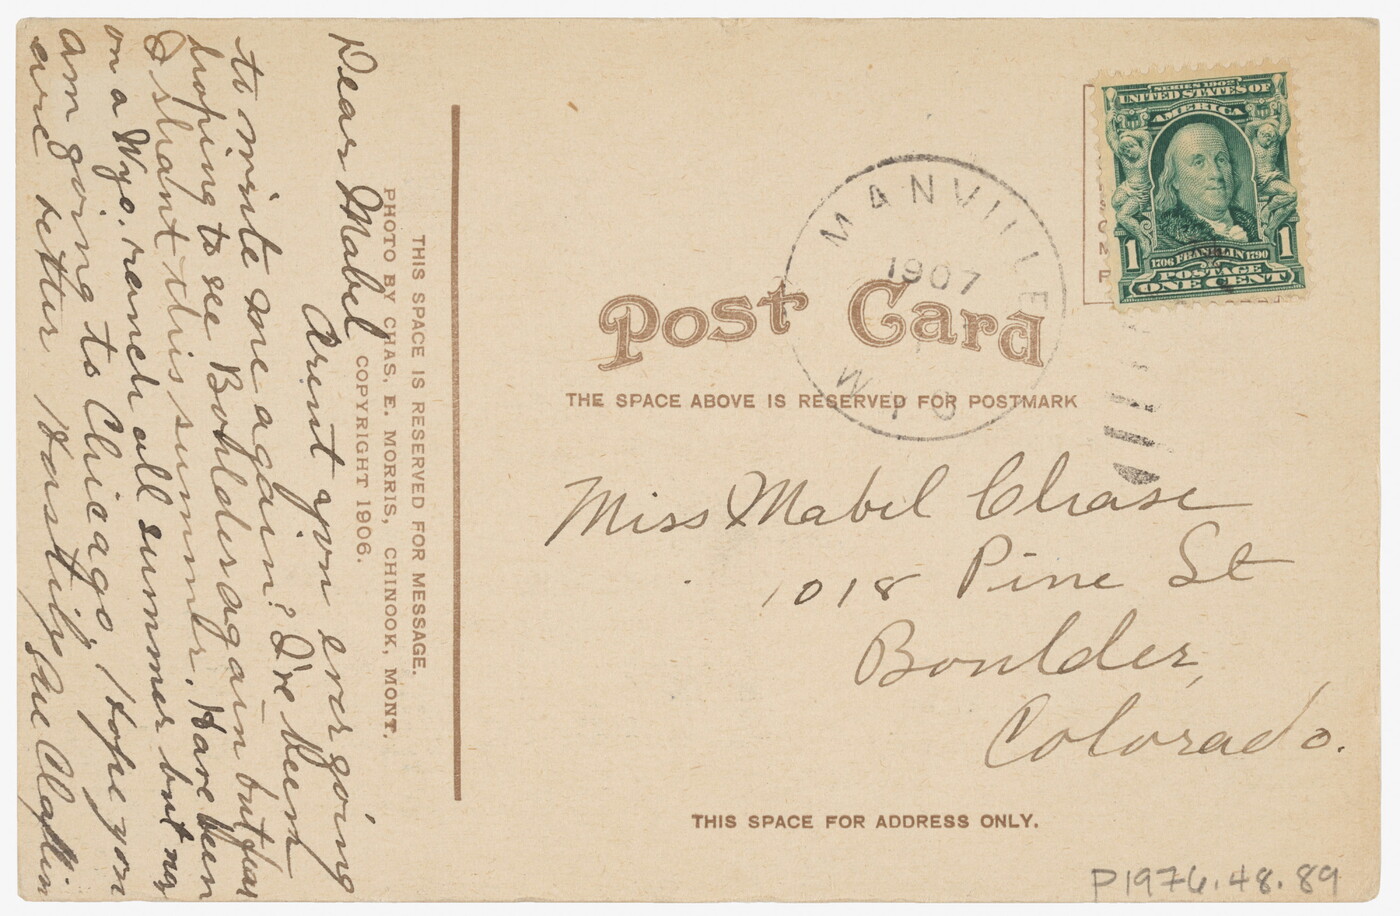 Dear Mabel
Arent you ever going
to write me again? I've been
hoping to see Bohlder again but fear
I shant this summer. Have been
on a Wyo. ranch all summer but now
am going to Chicago. Hope you
are better Hastily Sue
THIS SPACE IS RESERVED FOR MESSAGE.
PHOTO BY CHAS. E. MORRIS, CHINOOK, MONT.
COPYRIGHT 1906.
SERIES 1902
UNITED STATES OF
AMERICA
1706 FRANKLIN 1790
1 1
POSTAGE
ONE CENT
MANVILLE
1907
WYO
Post Card
THE SPACE ABOVE IS RESERVED FOR POSTMARK
Miss Mabel Chase
1018 Pine St
Boulder,
Colorado.
THIS SPACE FOR ADDRESS ONLY.
P1976.48.89